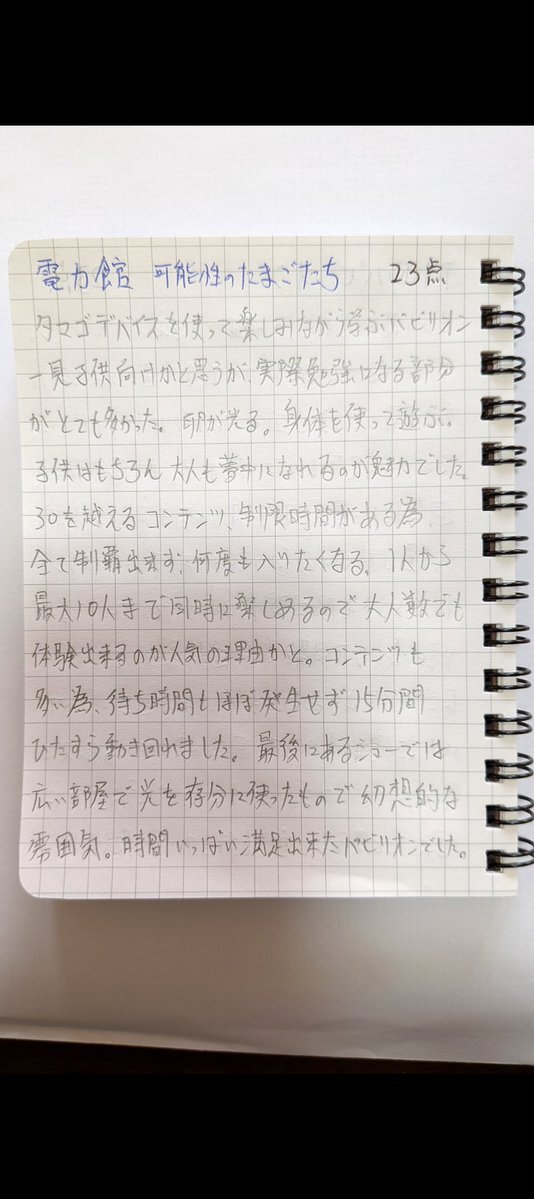 電力館 可能性のたまごたち 23点
タマゴデバイスを使って楽しみながら学ぶパビリオン
一見子供向けかと思うが、実際勉強になる部分
がとても多かった。卵が光る。身体を使って遊ぶ。
子供はもちろん 大人も夢中になれるのが魅力でした。
30を越えるコンテンツ、制限時間がある為、
全て制覇出来ず、何度も入りたくなる。1人から
最大10人まで同時に楽しめるので大人数でも
体験出来るのが人気の理由かと。コンテンツも
多い為、待ち時間もほぼ発生せず15分間
ひたすら動き回れました。最後にあるショーでは
広い部屋で光を存分に使ったもので幻想的な
雰囲気。時間いっぱい満足出来たパビリオンでした。